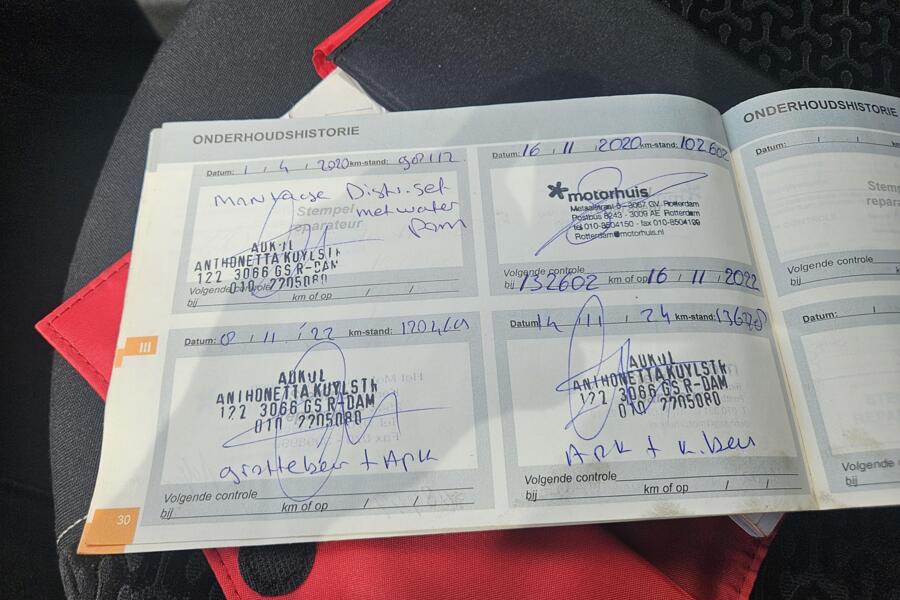 ONDERHOUDSHISTORIE
Datum: 1 / 4 / 2020 km-stand:
Montage Distr. set
met water
pom
Stempel
reparateur
AUKUL
ANTHONETTA KUYLSTR
122 3066 GS R-DAM
010 2205080
Volgende controle
bij km of op / /
Datum: 16 / 11 / 2020 km-stand: 102602
motorhuis
Metaalstraat 5 - 3067 GV Rotterdam
Postbus 8243 - 3009 AE Rotterdam
tel 010-8504150 - fax 010-8504199
Rotterdam@motorhuis.nl
Volgende controle
bij 132602 km of op 16 / 11 / 2022
III
Datum: 8 / 11 / '22 km-stand:
AUKUL
ANTHONETTA KUYLSTR
122 3066 GS R-DAM
010 2205080
grotebeur + APK
Volgende controle
bij km of op / /
Datum: 14 / 11 / 24 km-stand:
AUKUL
ANTHONETTA KUYLSTR
122 3066 GS R-DAM
010 2205080
APK + k. beu
Volgende controle
bij km of op / /
30
ONDERHOUDSHISTORIE
Datum: / /
Stem
repara
Volgende controle
bij
Datum: /
Volgende
bij